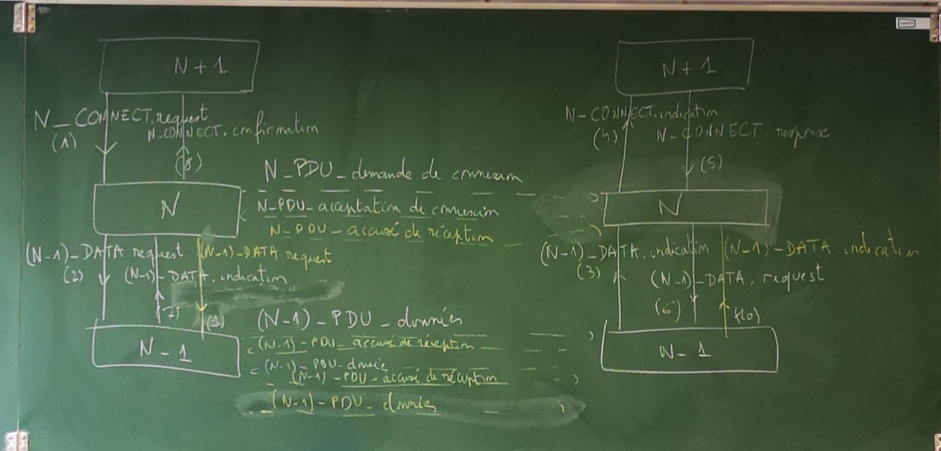 N+1
N+1
N_CONNECT.request
(1)
N-CONNECT.confirmation
(8)
N-CONNECT.indication
(4)
N-CONNECT.response
(5)
N-PDU-demande de connexion
N
N-PDU-acceptation de connexion
N
N-PDU-accusé de réception
(N-1)-DATA request
(2)
(N-1)-DATA.indication
(7)
(N-1)-DATA request
(9)
(N-1)-DATA.indication
(3)
(N-1)-DATA.request
(6)
(N-1)-DATA indication
(10)
(N-1)-PDU-données
N-1
(N-1)-PDU-accusé de réception
N-1
(N-1)-PDU-donnée
(N-1)-PDU-accusé de réception
(N-1)-PDU-données